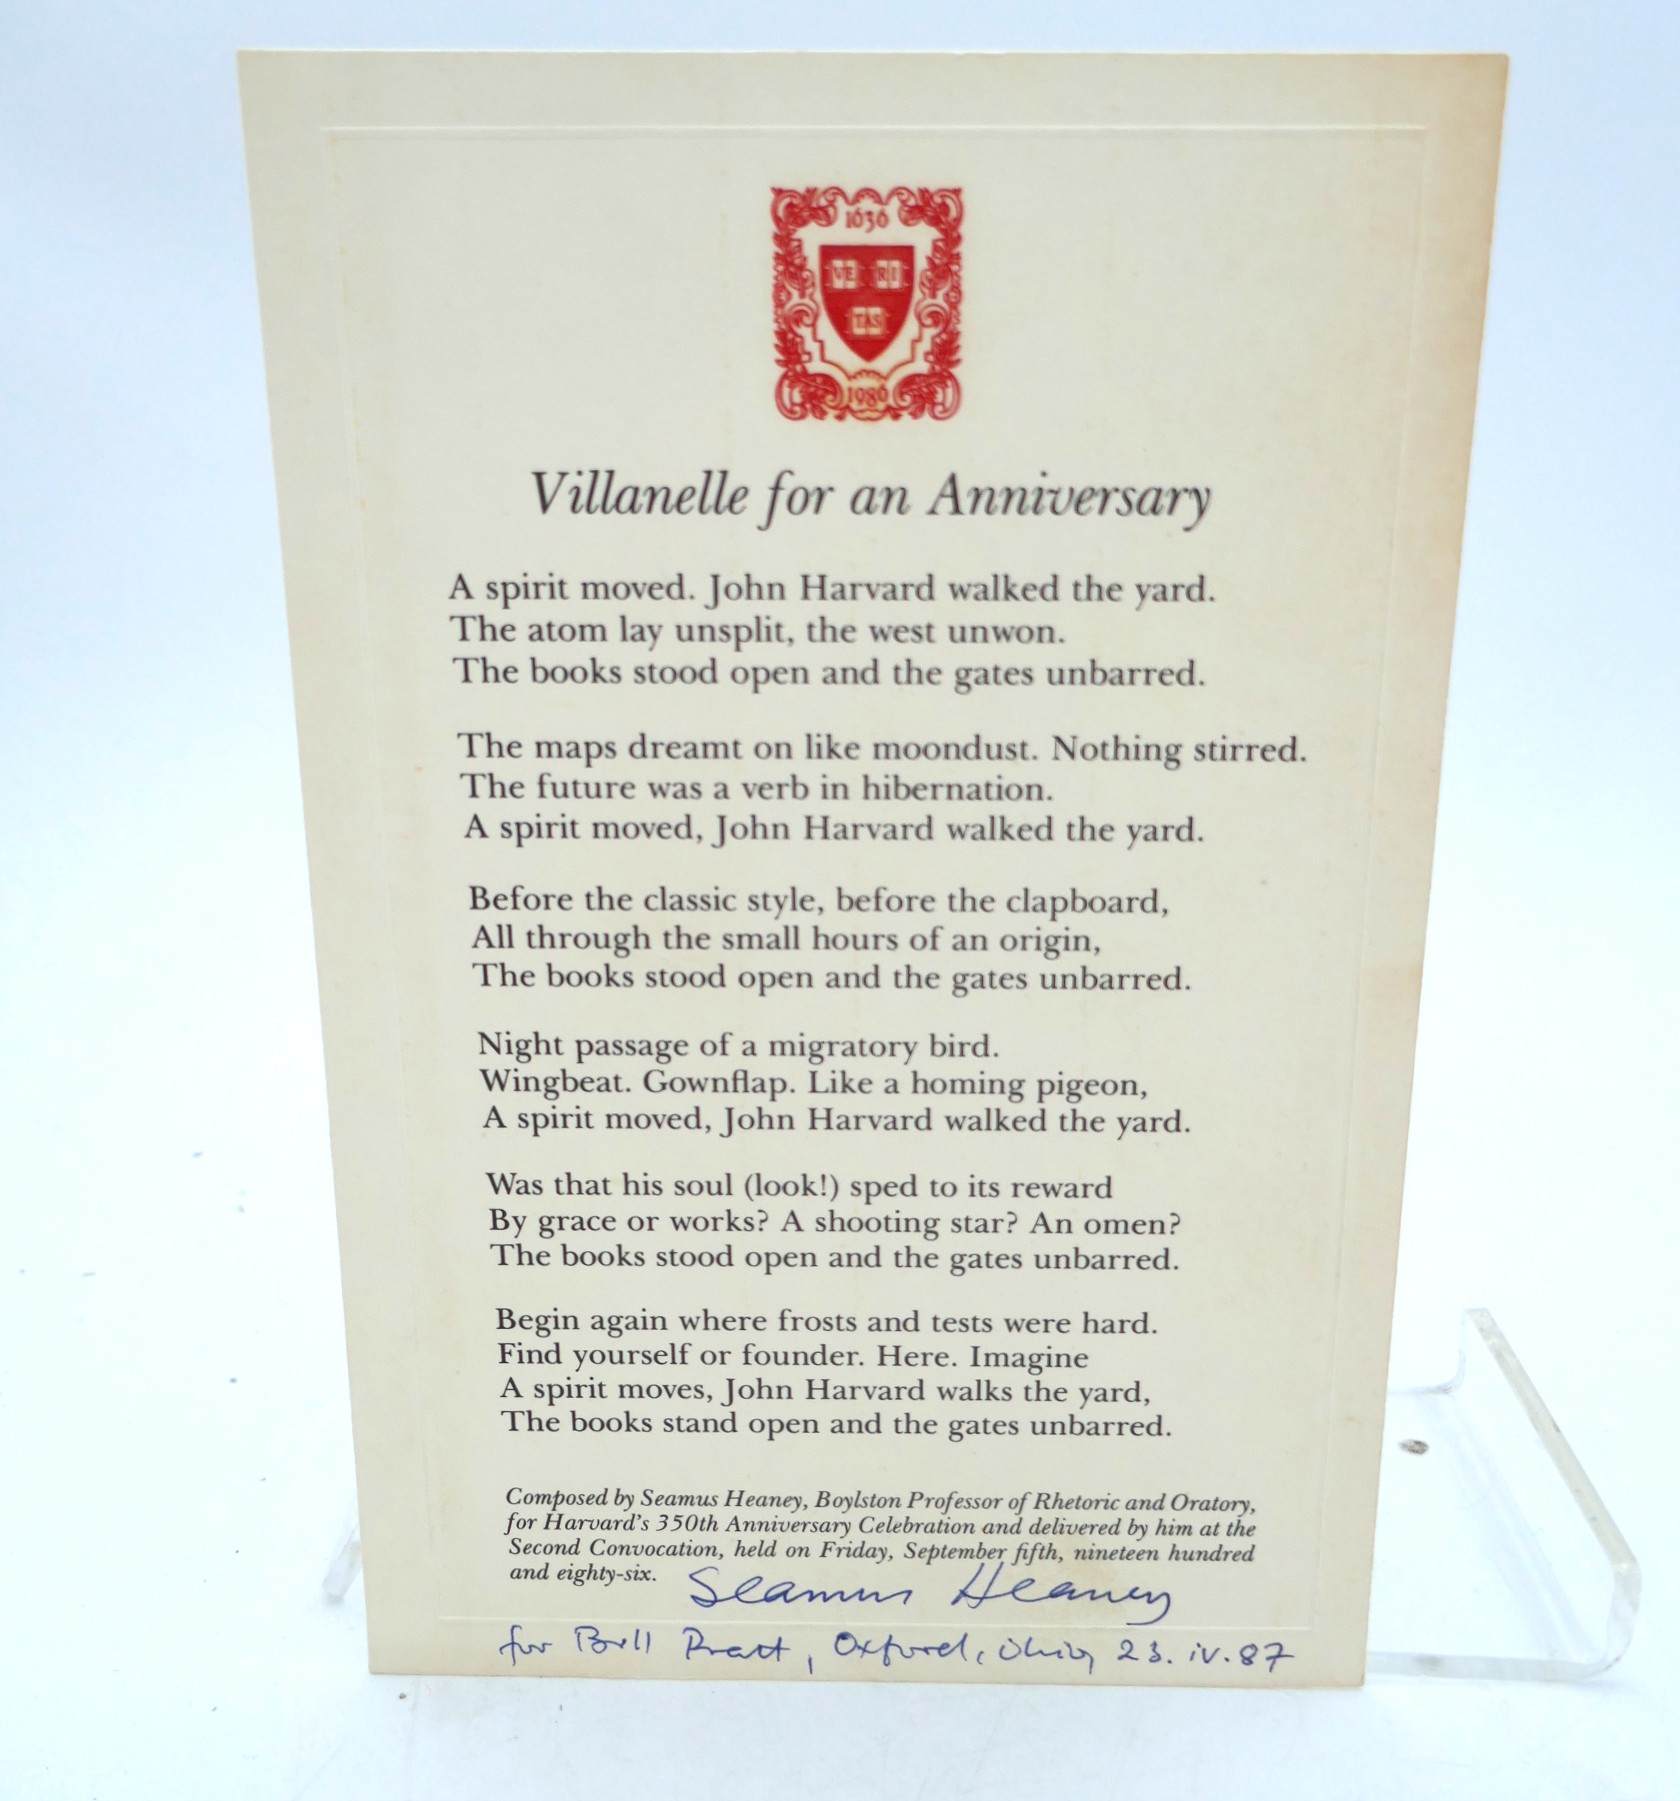 1636
VE RI
TAS
1986
Villanelle for an Anniversary
A spirit moved. John Harvard walked the yard.
The atom lay unsplit, the west unwon.
The books stood open and the gates unbarred.
The maps dreamt on like moondust. Nothing stirred.
The future was a verb in hibernation.
A spirit moved, John Harvard walked the yard.
Before the classic style, before the clapboard,
All through the small hours of an origin,
The books stood open and the gates unbarred.
Night passage of a migratory bird.
Wingbeat. Gownflap. Like a homing pigeon,
A spirit moved, John Harvard walked the yard.
Was that his soul (look!) sped to its reward
By grace or works? A shooting star? An omen?
The books stood open and the gates unbarred.
Begin again where frosts and tests were hard.
Find yourself or founder. Here. Imagine
A spirit moves, John Harvard walks the yard,
The books stand open and the gates unbarred.
Composed by Seamus Heaney, Boylston Professor of Rhetoric and Oratory,
for Harvard's 350th Anniversary Celebration and delivered by him at the
Second Convocation, held on Friday, September fifth, nineteen hundred
and eighty-six.
Seamus Heaney
for Bill Pratt, Oxford, Ohio, 23. iv. 87